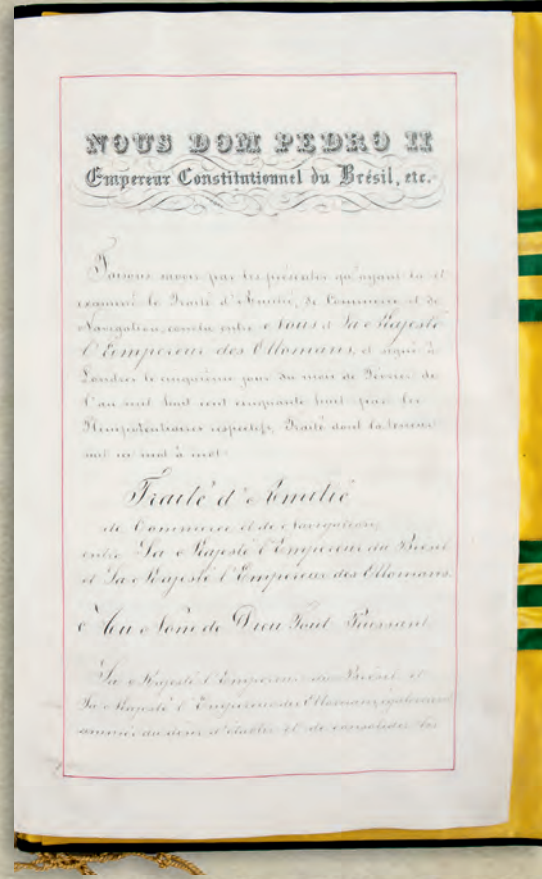 NOUS DOM PEDRO II
Empereur Constitutionnel du Brésil, etc.
Faisons savoir par les présentes qu'ayant lu et
examiné le Traité d'Amitié, de Commerce et de
Navigation, conclu entre Nous et Sa Majesté
l'Empereur des Ottomans, et signé à
Londres le cinquième jour du mois de Février de
l'an mil huit cent cinquante huit par les
Plénipotentiaires respectifs, Traité dont la teneur
suit mot à mot:
Traité d'Amitié
de Commerce et de Navigation,
entre Sa Majesté l'Empereur du Brésil
et Sa Majesté l'Empereur des Ottomans.
Au Nom de Dieu Tout Puissant
Sa Majesté l'Empereur du Brésil et
Sa Majesté l'Empereur des Ottomans, également
animés du désir d'établir et de consolider les